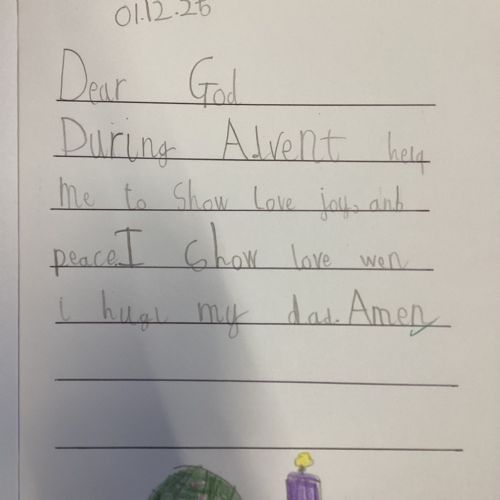 01.12.25
Dear God
During Advent help
me to Show love joy, anb
peace. I Show love wen
i hugi my dad. Amen